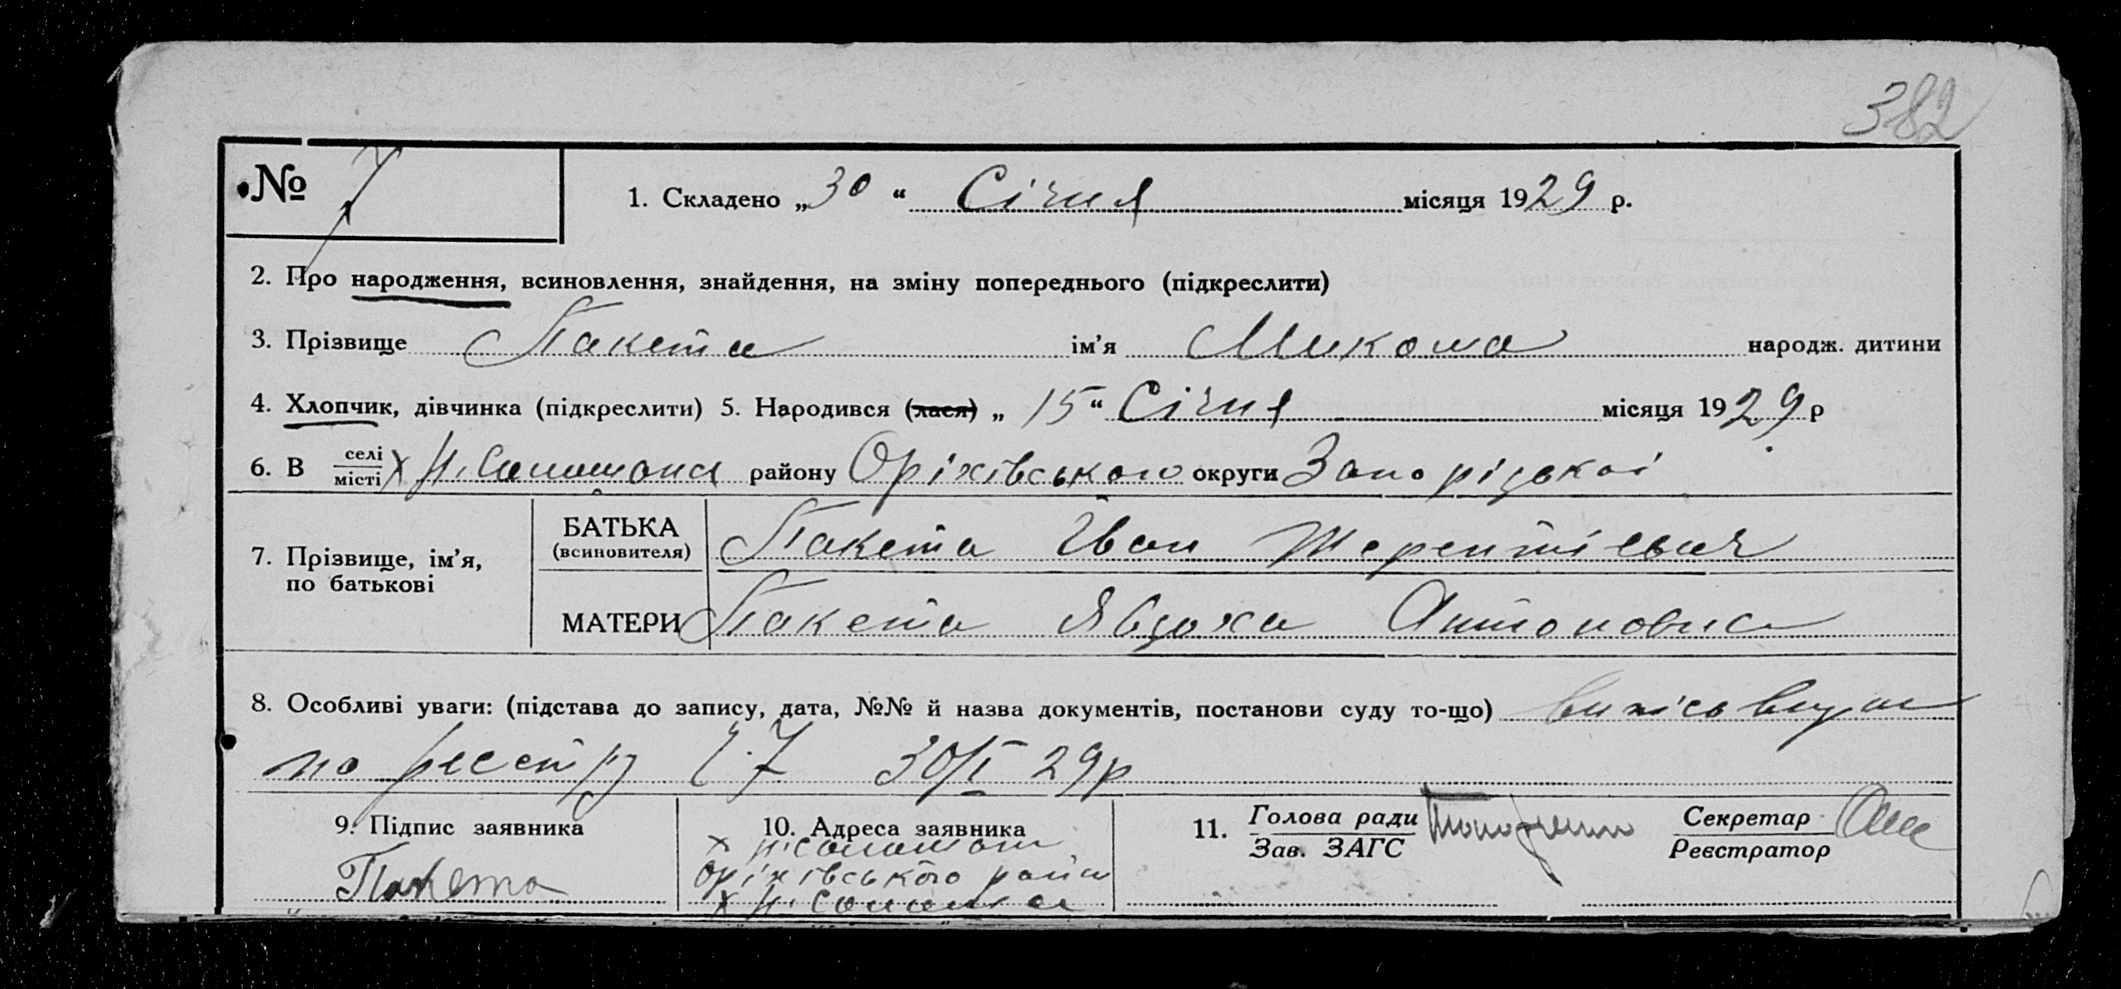 382
№ 7
1. Складено „30“ Січня місяця 1929 р.
2. Про народження, всиновлення, знайдення, на зміну попереднього (підкреслити)
3. Прізвище Пакета ім’я Микола народж. дитини
4. Хлопчик, дівчинка (підкреслити) 5. Народився (лася) „15“ Січня місяця 1929 р
6. В селі місті х Н. району Оріхівського округи Запоріцькоі
7. Прізвище, ім’я, по батькові
БАТЬКА (всиновителя) Пакета Іван Терентіевич
МАТЕРИ Пакета Явдоха Антоновна
8. Особливі уваги: (підстава до запису, дата, №№ й назва документів, постанови суду то-що)
по реестру Ч. 7 30/I 29р
9. Підпис заявника
Пакета
10. Адреса заявника
х Н.
Оріхівського райн
х Н.
11. Голова ради
Зав. ЗАГС
Секретар
Реєстратор